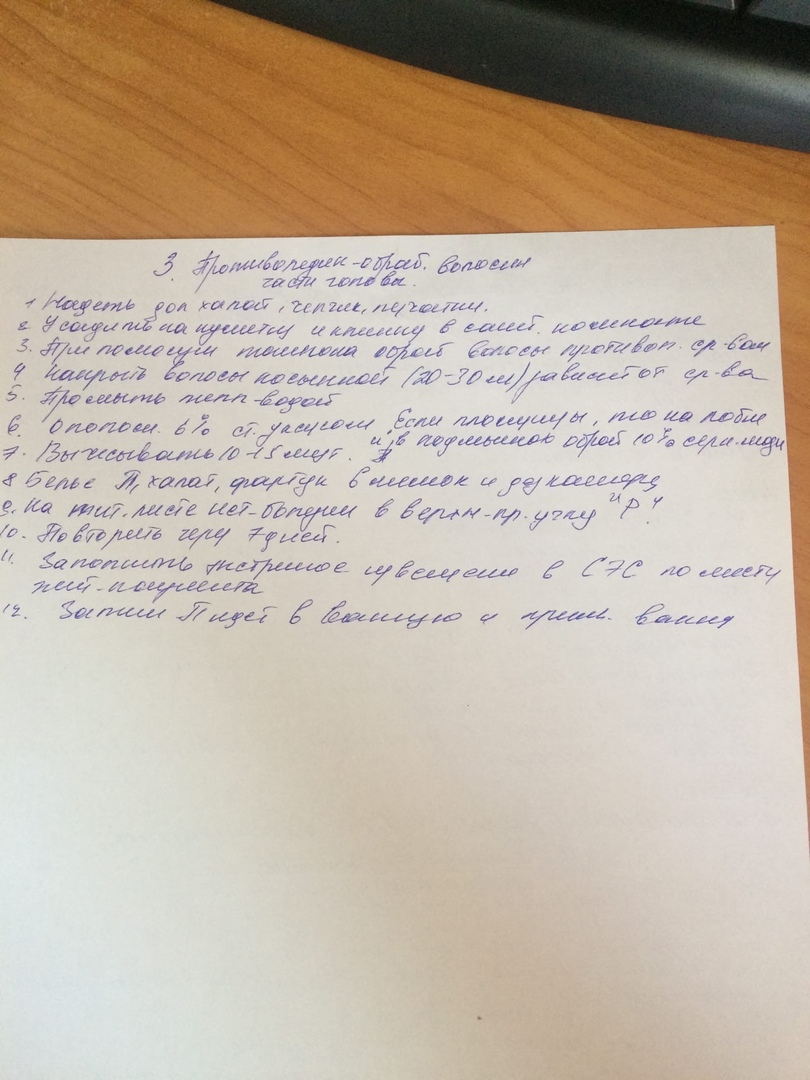 3. Противопедик-обраб. волосян
части головы.
1 Надеть доп халат, чепчик, перчатки.
2 Усадить на кушетку и клиенку в санит. комнате
3. При помощи тампона обраб волосы противоп. ср-вом
4 накрыть волосы косынкой (20-30 м) зависит от ср-ва
5. Промыть тепл-водой
6. Ополосн. 6% ст. уксусом Если площицы, то на лобке
7. Вычесывать 10-15 минут. и в подмышках обраб 10% серн. мази
8 Белье П, халат, фартук в мешок и дез камеру
9. На тит. листе ист-болезни в верхн-пр. углу "Р".
10. Повторить через 7 дней.
11. Заполнить экстренное извещение в СЭС по месту
жит-пациента
12. Затем П идет в ванную и прин. ванну